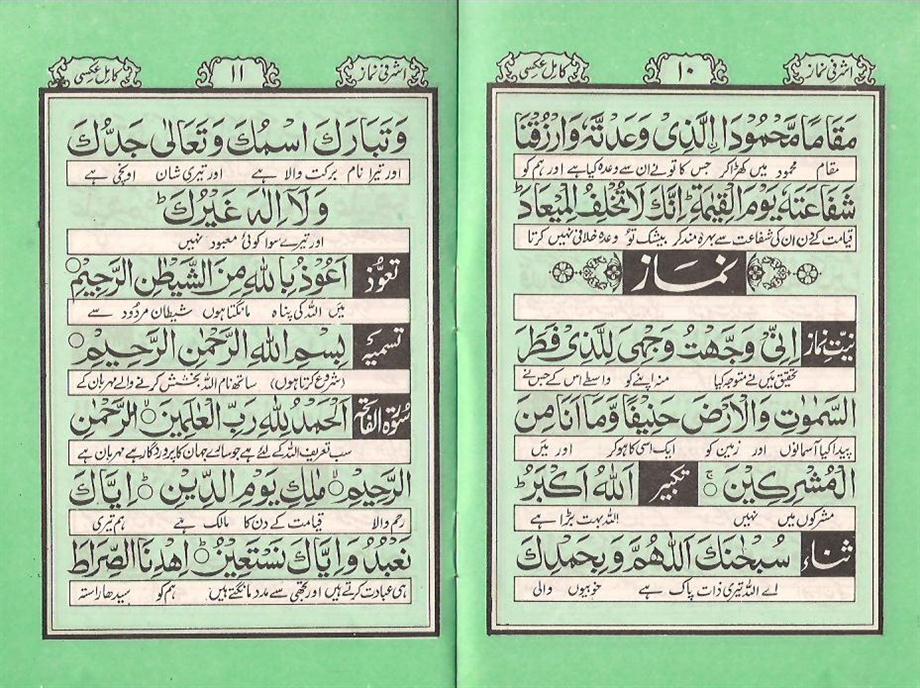 اشرفی نماز ١٠ کامل عکسی
مَقَامًا مَّحْمُوْدَا اِلَّذِیْ وَعَدْتَّهٗ وَارْزُقْنَا
مقام محمود میں کھڑا کر جس کا تو نے ان سے وعدہ کیا ہے اور ہم کو
شَفَاعَتَهٗ یَوْمَ الْقِیٰمَةِ ؕ اِنَّكَ لَا تُخْلِفُ الْمِیْعَادَ ؕ
قیامت کے دن ان کی شفاعت سے بہرہ مند کر بیشک تو وعدہ خلافی نہیں کرتا
نماز
نیت نماز اِنِّیْ وَجَّهْتُ وَجْهِیَ لِلَّذِیْ فَطَرَ
تحقیق میں نے متوجہ کیا منہ اپنے کو واسطے اس کے جس نے
السَّمٰوٰتِ وَالْاَرْضَ حَنِیْفًا وَّمَا اَنَا مِنَ
پیدا کیا آسمانوں اور زمین کو ایک اسی کا ہو کر اور میں
الْمُشْرِكِیْنَ ۚ تکبیر اَللهُ اَكْبَرُ ؕ
مشرکوں میں نہیں اللہ بہت بڑا ہے
ثناء سُبْحٰنَكَ اللّٰهُمَّ وَبِحَمْدِكَ
اے اللہ تیری ذات پاک ہے خوبیوں والی
اشرفی نماز ١١ کامل عکسی
وَتَبَارَكَ اسْمُكَ وَتَعَالٰی جَدُّكَ
اور تیرا نام برکت والا ہے اور تیری شان اونچی ہے
وَلَآ اِلٰهَ غَیْرُكَ ؕ
اور تیرے سوا کوئی معبود نہیں
تعوّذ اَعُوْذُ بِاللهِ مِنَ الشَّیْطٰنِ الرَّجِیْمِ ۝
میں اللہ کی پناہ مانگتا ہوں شیطان مردود سے
تسمیہ بِسْمِ اللهِ الرَّحْمٰنِ الرَّحِیْمِ ۝
(شروع کرتا ہوں) ساتھ نام اللہ بخشش کرنے والے مہربان کے
سورة الفاتحہ اَلْحَمْدُ لِلّٰهِ رَبِّ الْعٰلَمِیْنَ ۙ الرَّحْمٰنِ
سب تعریف اللہ کے لئے ہے جو سارے جہان کا پروردگار ہے مہربان ہے
الرَّحِیْمِ ۙ مٰلِكِ یَوْمِ الدِّیْنِ ؕ اِیَّاكَ
رحم والا قیامت کے دن کا مالک ہے ہم تیری
نَعْبُدُ وَاِیَّاكَ نَسْتَعِیْنُ ؕ اِهْدِنَا الصِّرَاطَ
ہی عبادت کرتے ہیں اور تجھی سے مدد مانگتے ہیں ہم کو سیدھا راستہ